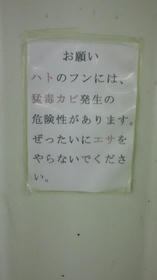 お願い
ハトのフンには、
猛毒カビ発生の
危険性があります。
ぜったいにエサを
やらないでくださ
い。